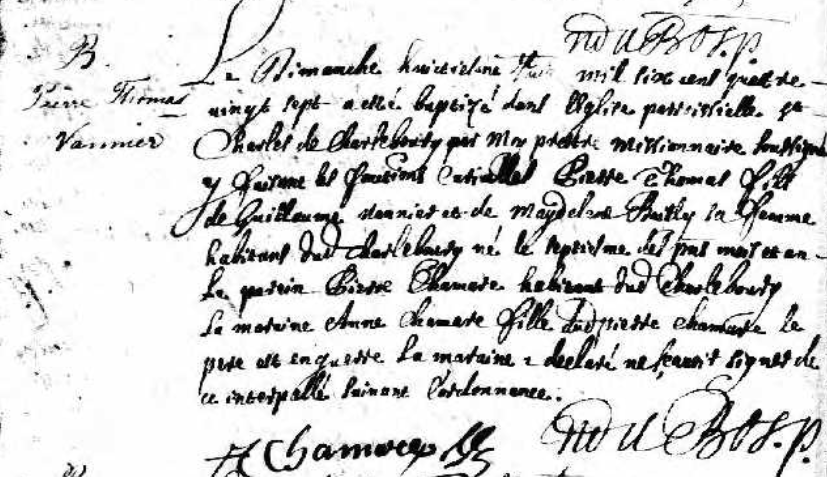 nd u BOS. p.
B
Pierre Thomas
Vannier
Le Dimanche huictiesme Juin mil six cens quattre-
vingt sept a esté baptizé dans l'Eglise paroissielle St
Charles de Charlebourg par Moy prestre missionnaire soussigné
y faisant les fonctions Curialles Pierre Thomas fils
de Guillaume vannier et de Magdelene Bailly sa femme
habitant dud Charlebourg né le septiesme des pnts mois et an
Le parein Pierre Chamare habitant dud Charlebourg
La maraine Anne Chamare fille dud pierre chamare le
pere est en guerre La maraine a declaré ne sçavoir signer de
ce interpellé suivant l'ordonnance.
Chamare
nd u BOS. p.